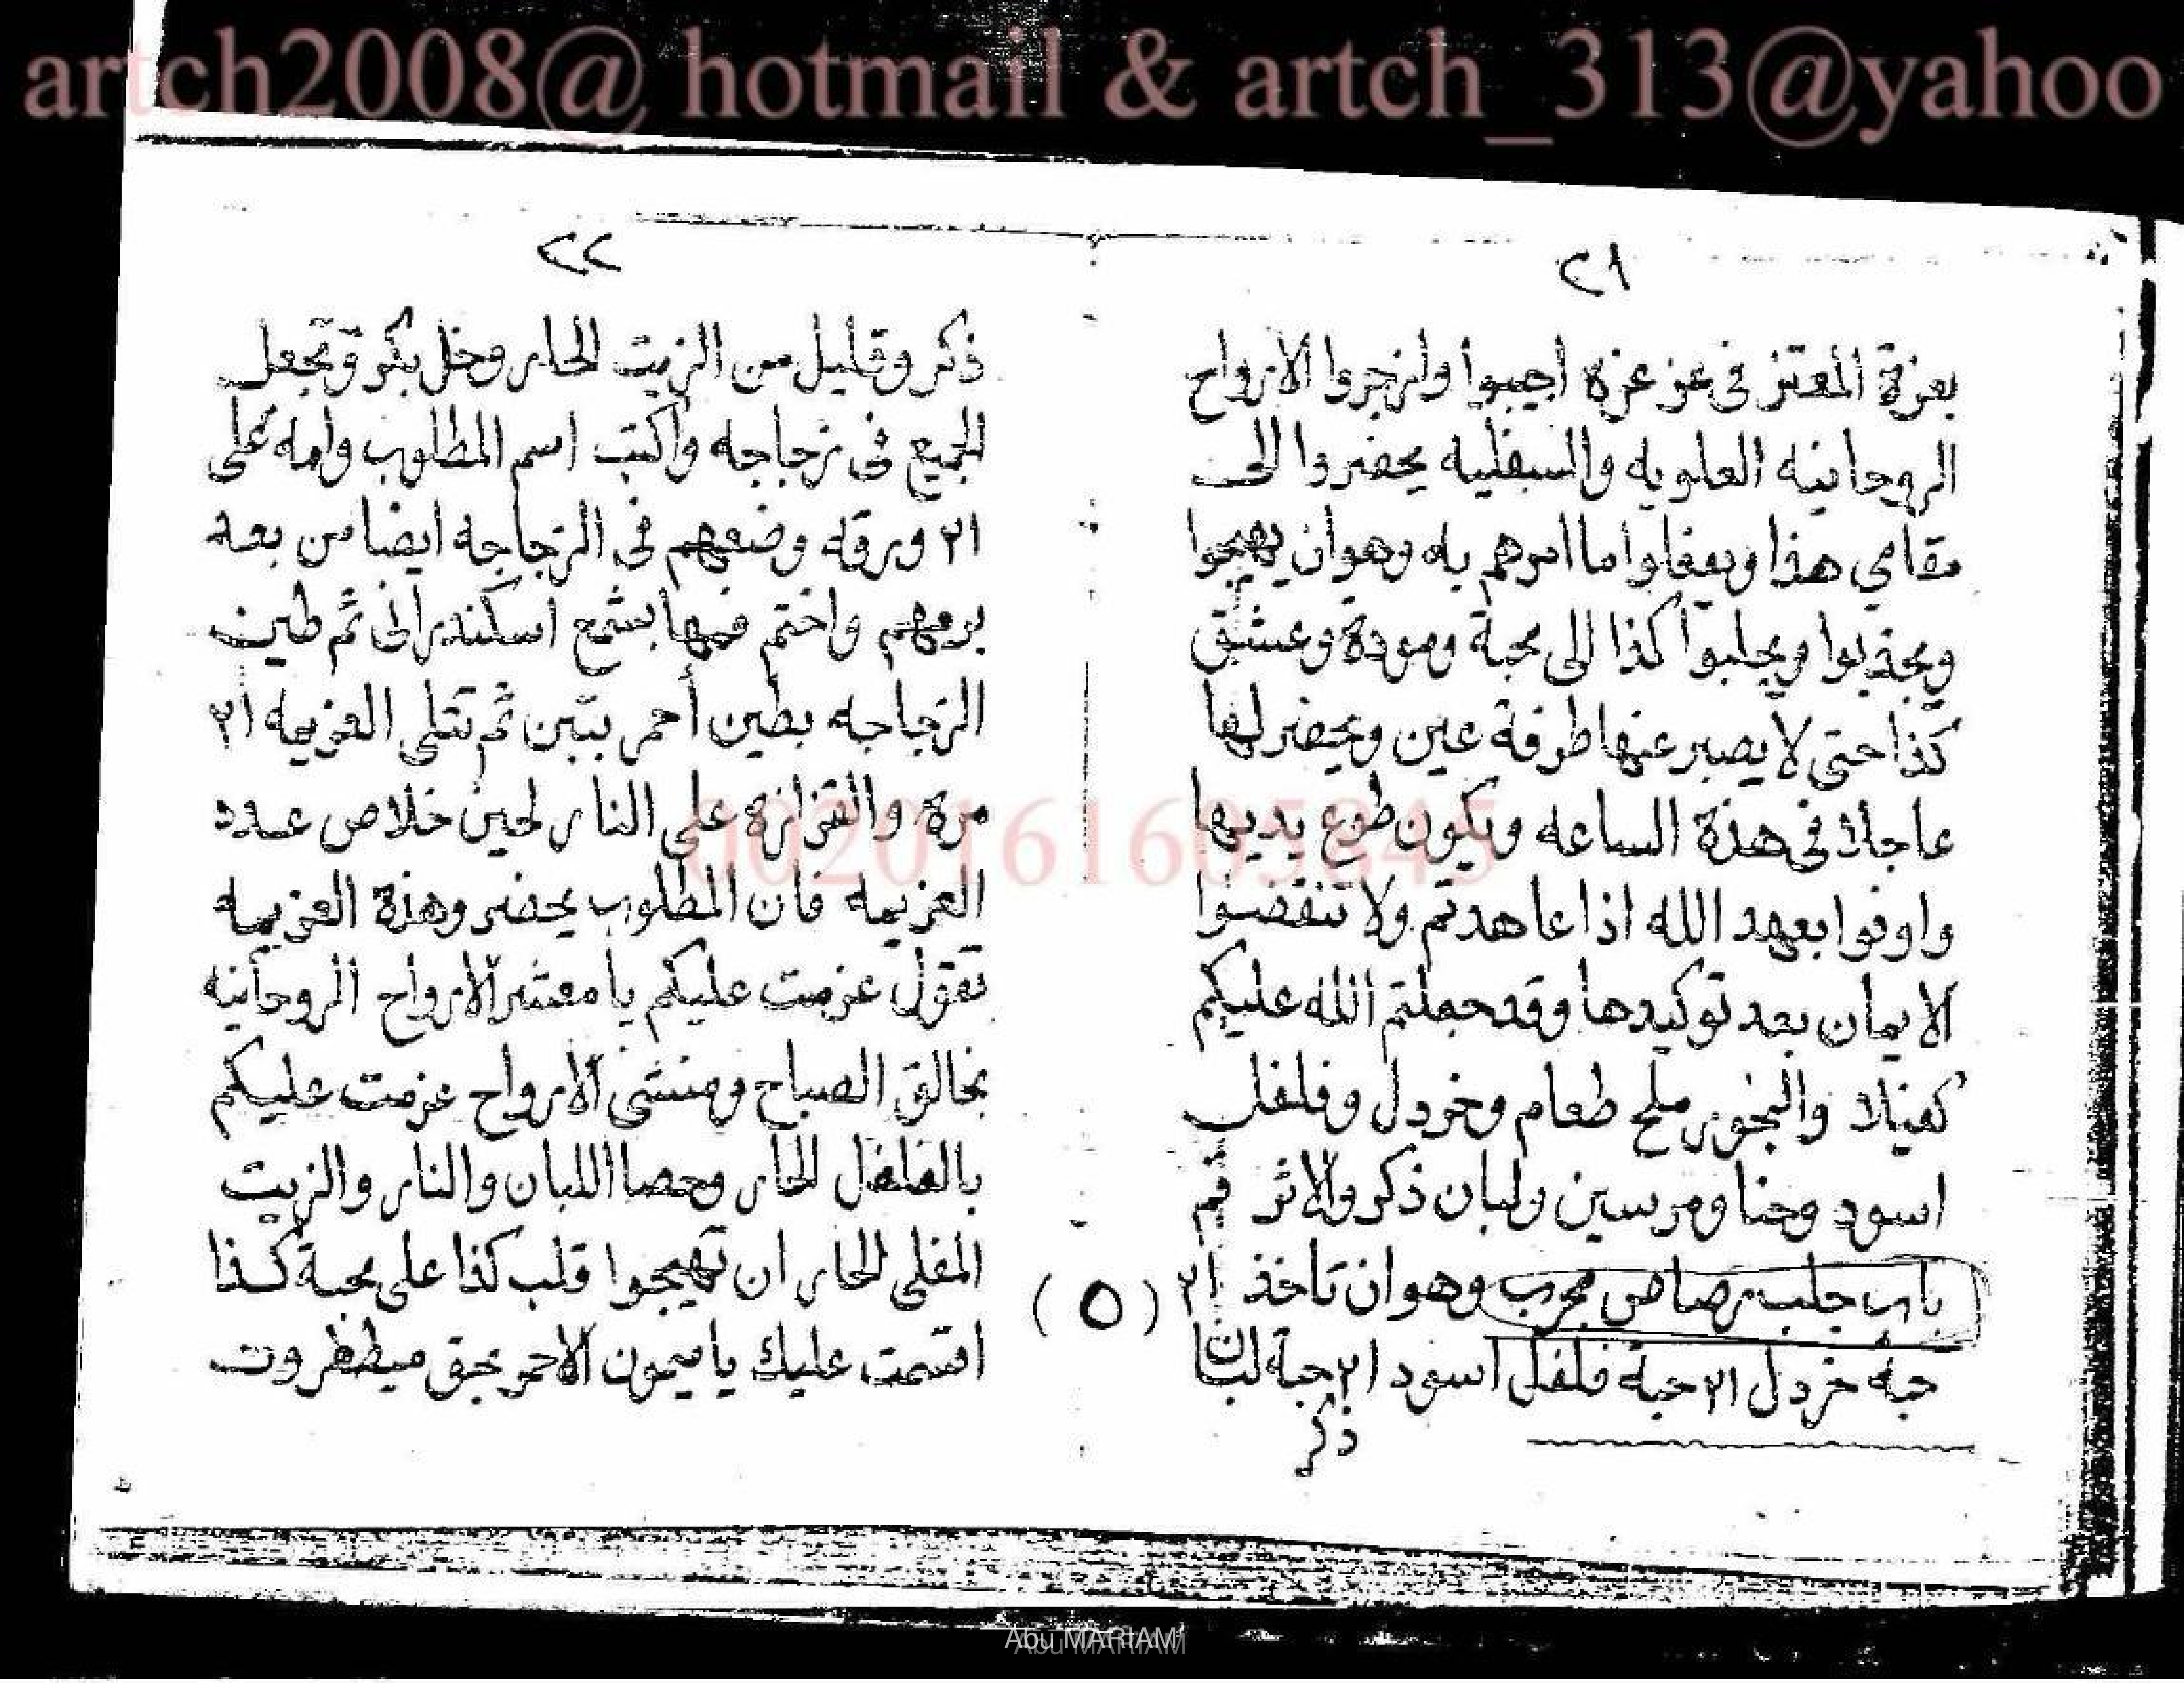 artch2008@ hotmail & artch_313@yahoo
٢١
بعزة المعتز فى عز عزه اجيبوا وازجروا الارواح
الروحانيه العلويه والسفليه يحضروا الى
مقامي هذا ويفعلوا ما امرهم به وهو ان يهيجوا
ويجذبوا ويجلبوا كذا الى محبة ومودة وعشق
كذا حتى لا يصبر عنها طرفة عين ويحضر لها
عاجلا فى هذة الساعه ويكون طوع يديها
واوفوا بعهد الله اذا عاهدتم ولا تنقضوا
الايمان بعد توكيدها وقد جعلتم الله عليكم
كفيلا والبخور ملح طعام وخردل وفلفل
اسود وحنا ومرسين ولبان ذكر والاثر تم
باب جلب رصاص مجرب وهو ان تاخذ ٢١
حبه خردل ٢١ حبة فلفل اسود ٢١ حبة لبان
ذكر
(٥)
٢٢
ذكر وقليل من الزيت الحار وخل بكر وتجعل
الجميع فى زجاجه واكتب اسم المطلوب وامه على
٢١ ورقه وضعهم فى الزجاجه ايضا من بعد
برمهم واختم فمها بشمع اسكندرانى ثم طين
الزجاجه بطين أحمر بتبن ثم تتلى العزيمه ٢١
مرة والقزازة على النار لحين خلاص عدد
العزيمه فان المطلوب يحضر وهذة العزيمه
تقول عزمت عليكم يا معشر الارواح الروحانيه
بخالق الصباح ومنشى الارواح عزمت عليكم
بالفلفل الحار وحصا اللبان والنار والزيت
المغلى الحار ان تهيجوا قلب كذا على محبة كذا
اقسمت عليك يا ميمون الاحمر بحق ميططروت
0020161605845
Abu MARIAM